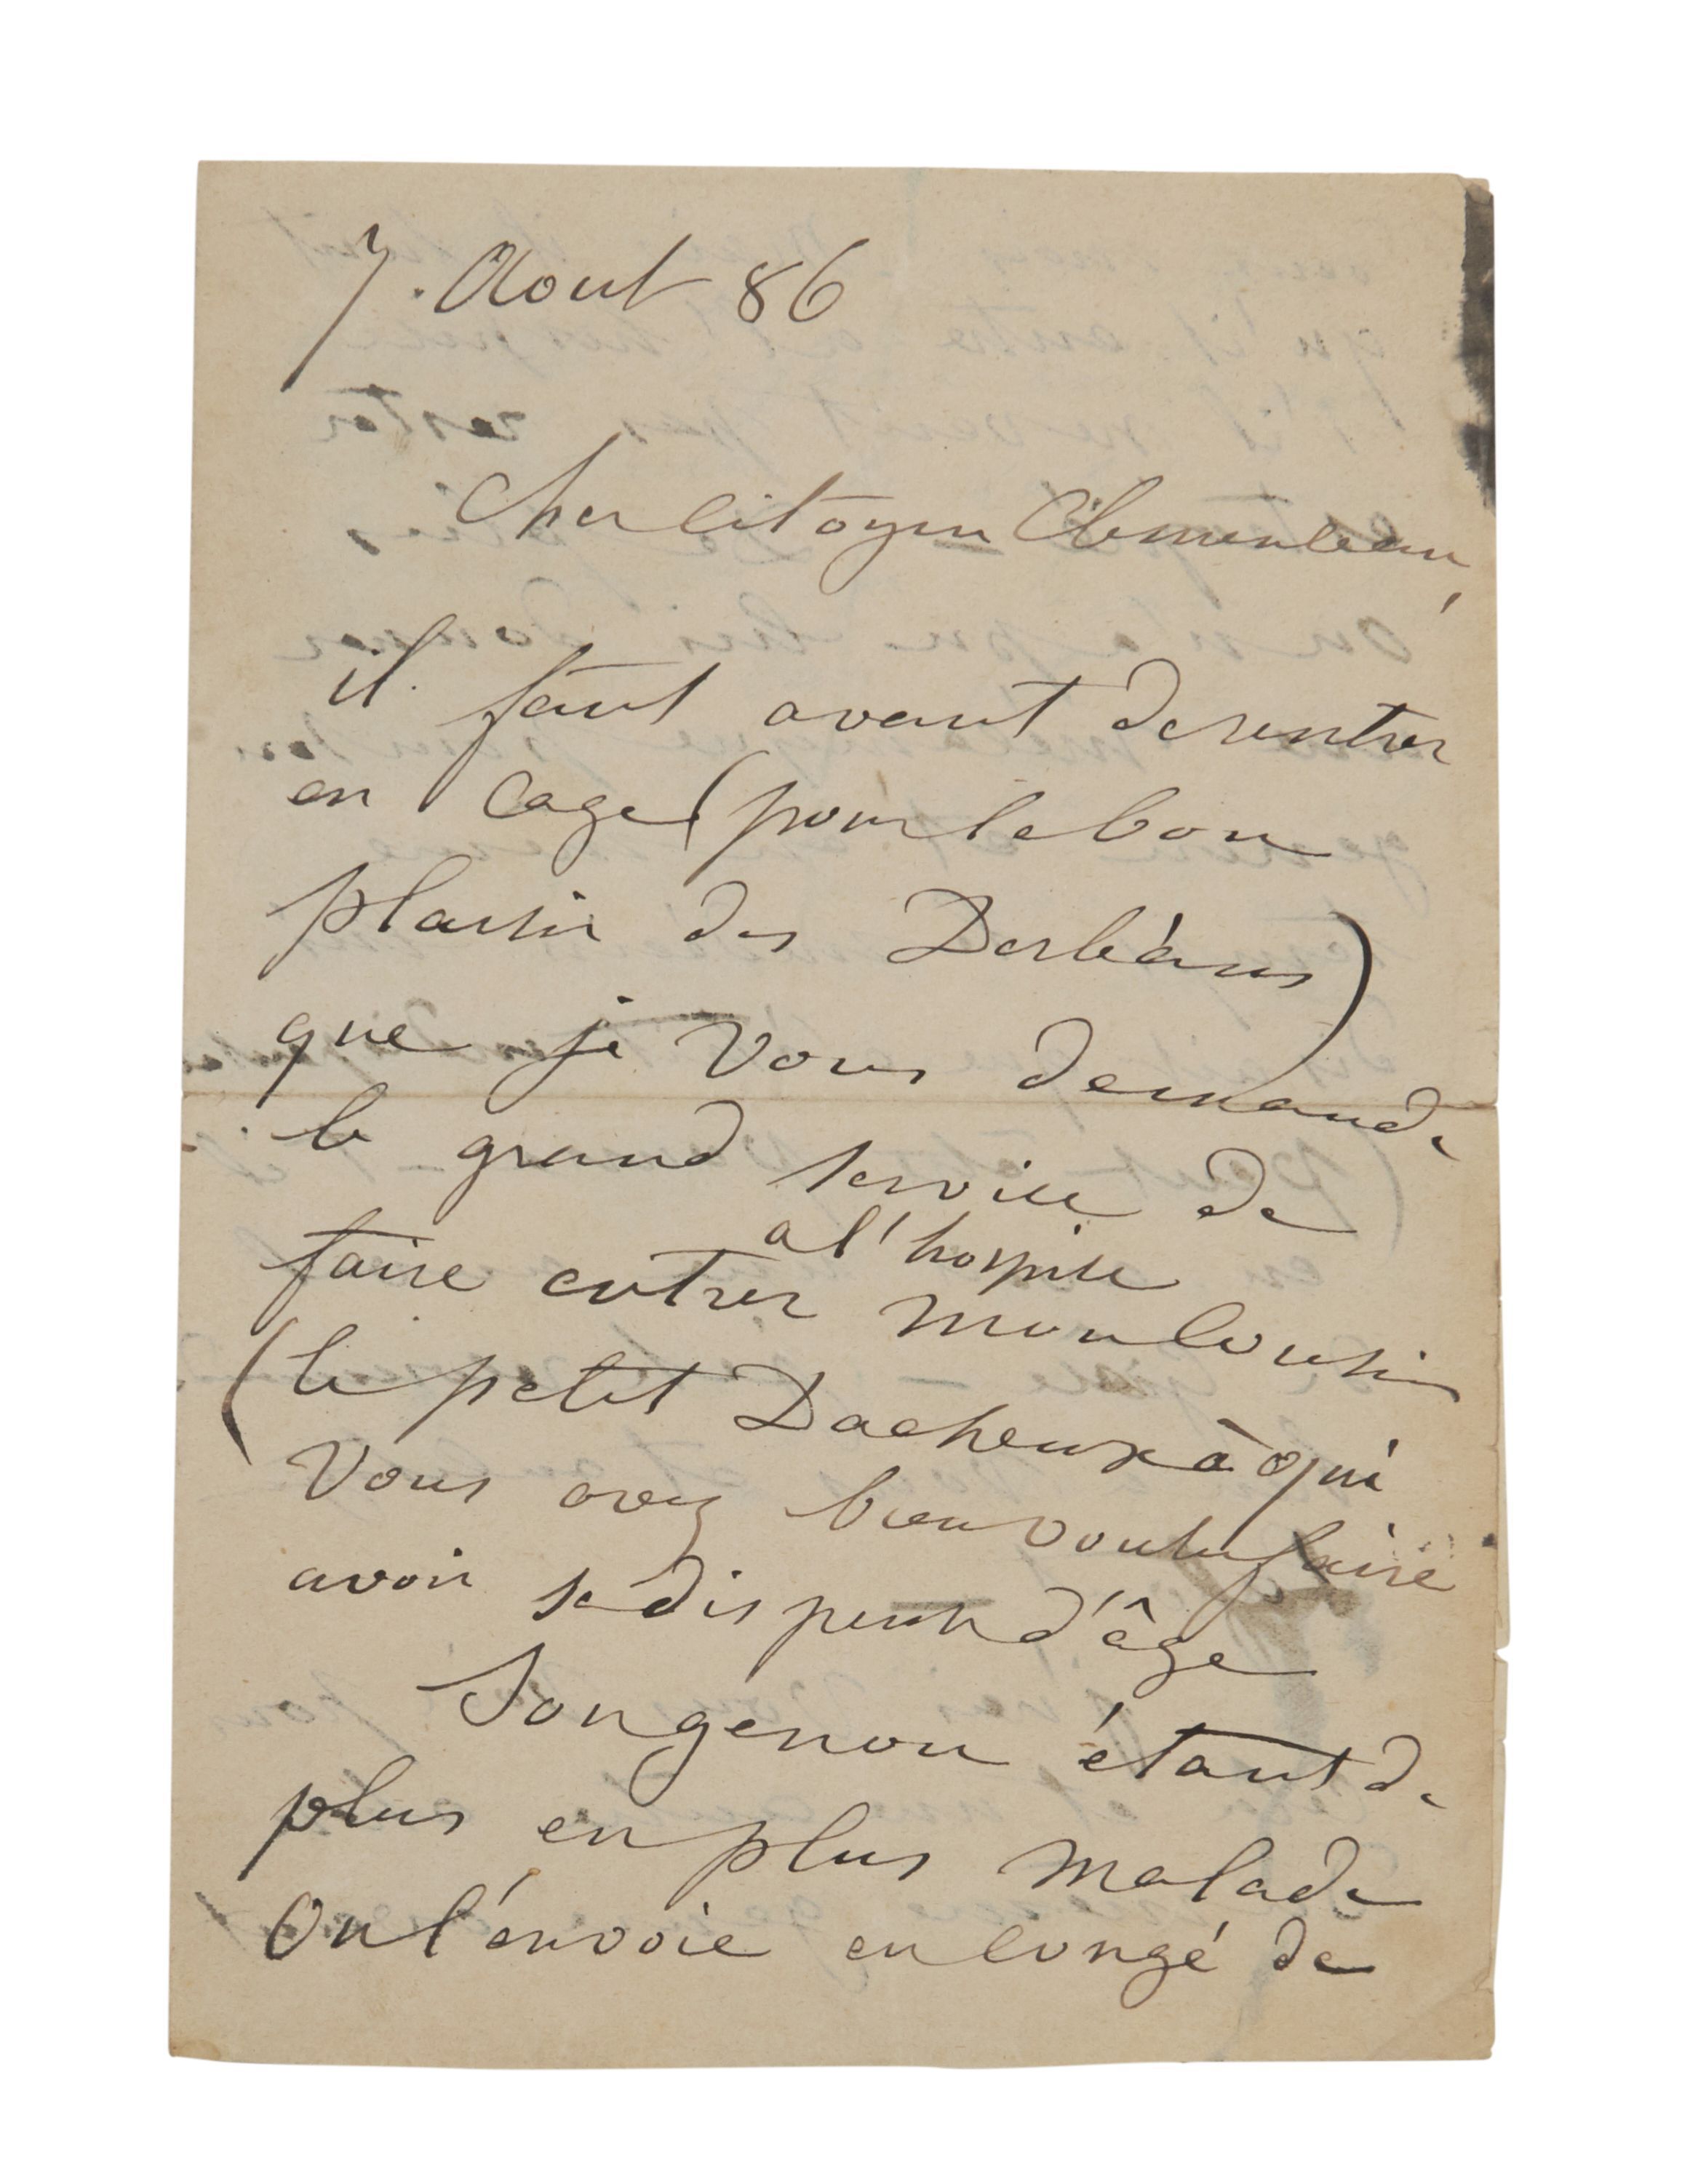 7. Aout 86
Cher Citoyen Clemenceau,
il faut avant de rentrer
en cage (pour le bon
plaisir des Dorléans)
que je vous demande
le grand service de
faire entrer à l'hospice mon cousin
(le petit Dacheux à qui
vous avez bien voulu faire
avoir sa dispense d'âge
Son genou étant de
plus en plus malade
on l'envoie en congé de